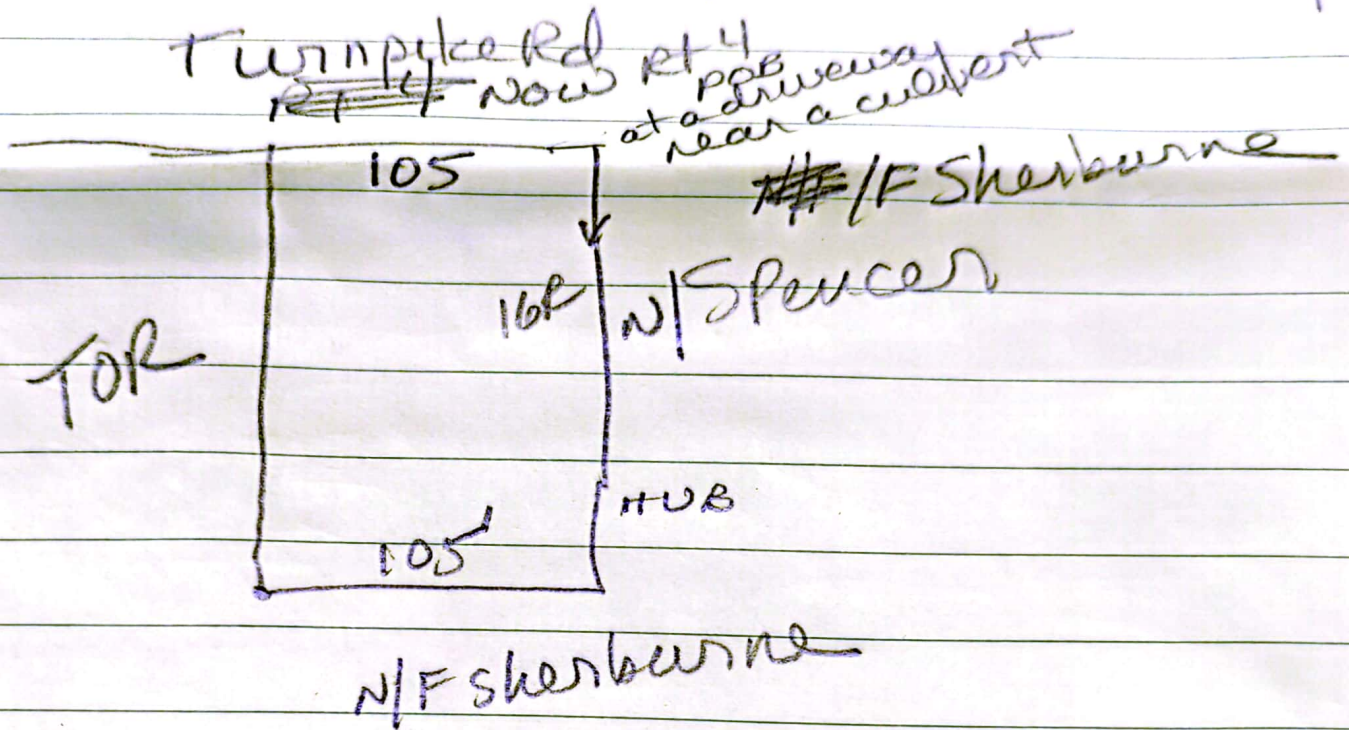 Turnpike Rd Rt 4
Now POB
at a driveway
near a culvert
105
/F Sherburne
16R N/Spencer
TOR
HUB
105'
N/F Sherburne